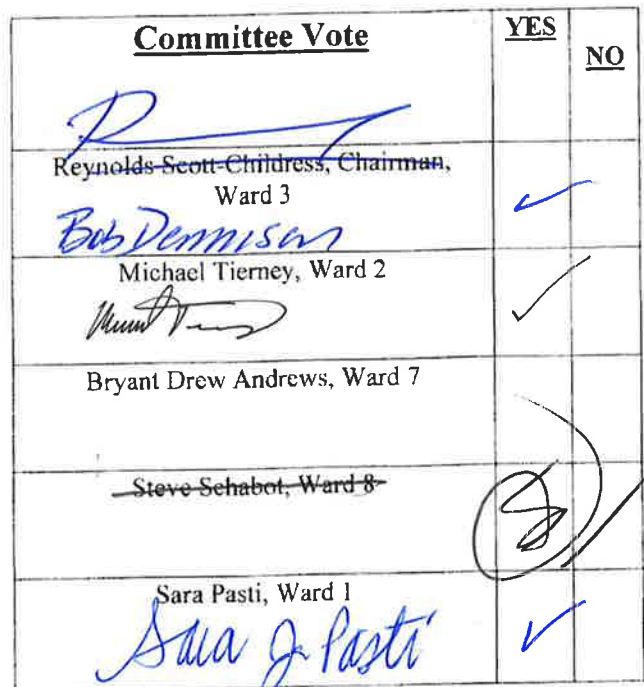 Committee Vote
YES
NO
Reynolds Scott-Childress, Chairman,
Ward 3
Bob Dennison
Michael Tierney, Ward 2
Bryant Drew Andrews, Ward 7
Steve Schabot, Ward 8
Sara Pasti, Ward 1
Sara J Pasti